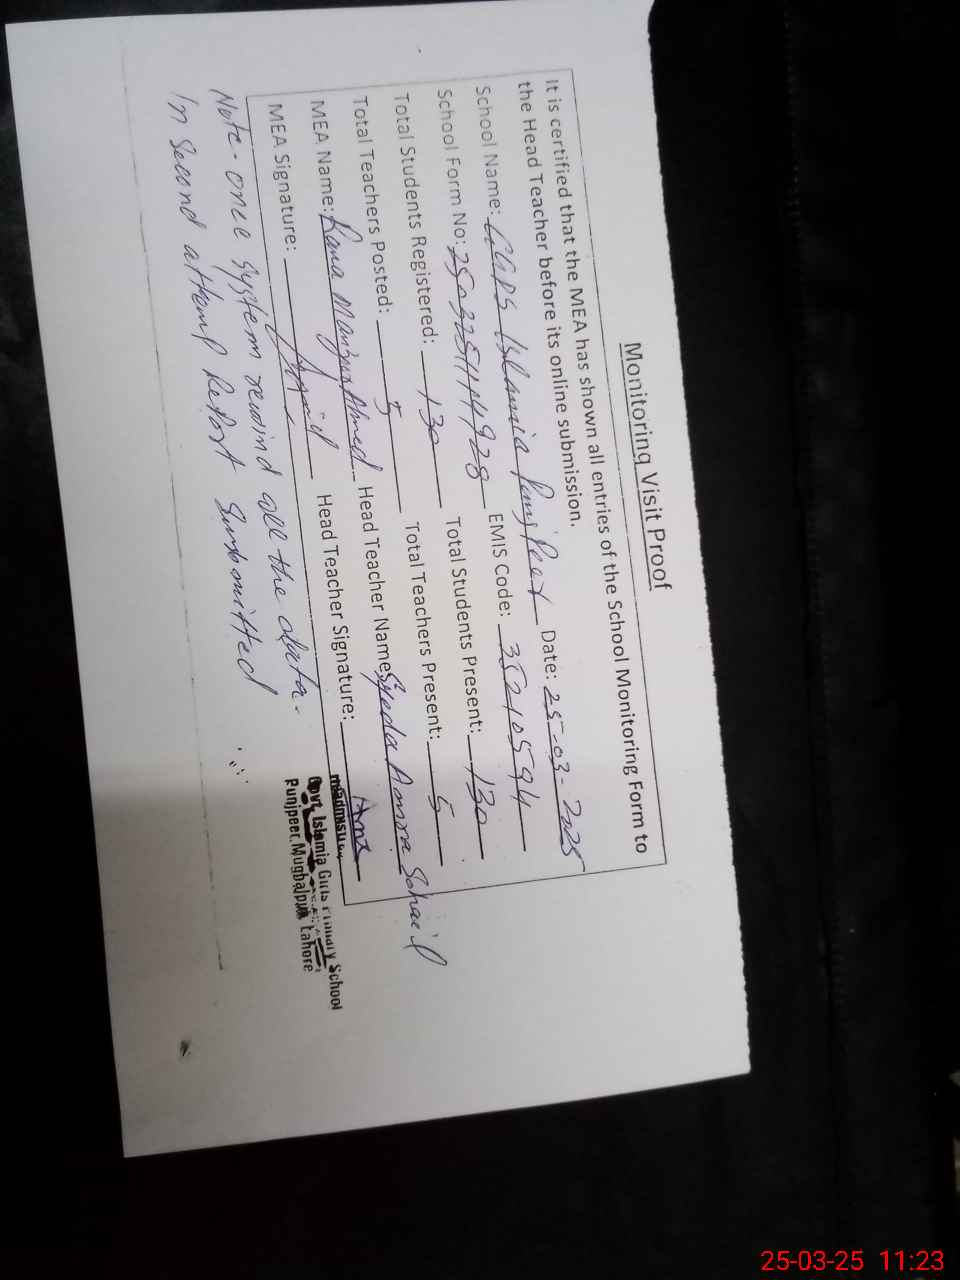 Monitoring Visit Proof
It is certified that the MEA has shown all entries of the School Monitoring Form to
the Head Teacher before its online submission.
School Name: GGPS Islamia Punj Peer Date: 25-03-2025
School Form No: EMIS Code: 35210594
Total Students Registered: 130 Total Students Present: 130
Total Teachers Posted: 5 Total Teachers Present: 5
MEA Name: Rana Manzur Ahmed Head Teacher Name: Syeda Sohail
MEA Signature: Head Teacher Signature:
Govt. Islamia Girls Primary School
Punjpeer, Mughalpura Lahore
Note - one system rewind all the data.
In second attemp Report Sumbmitted
25-03-25 11:23